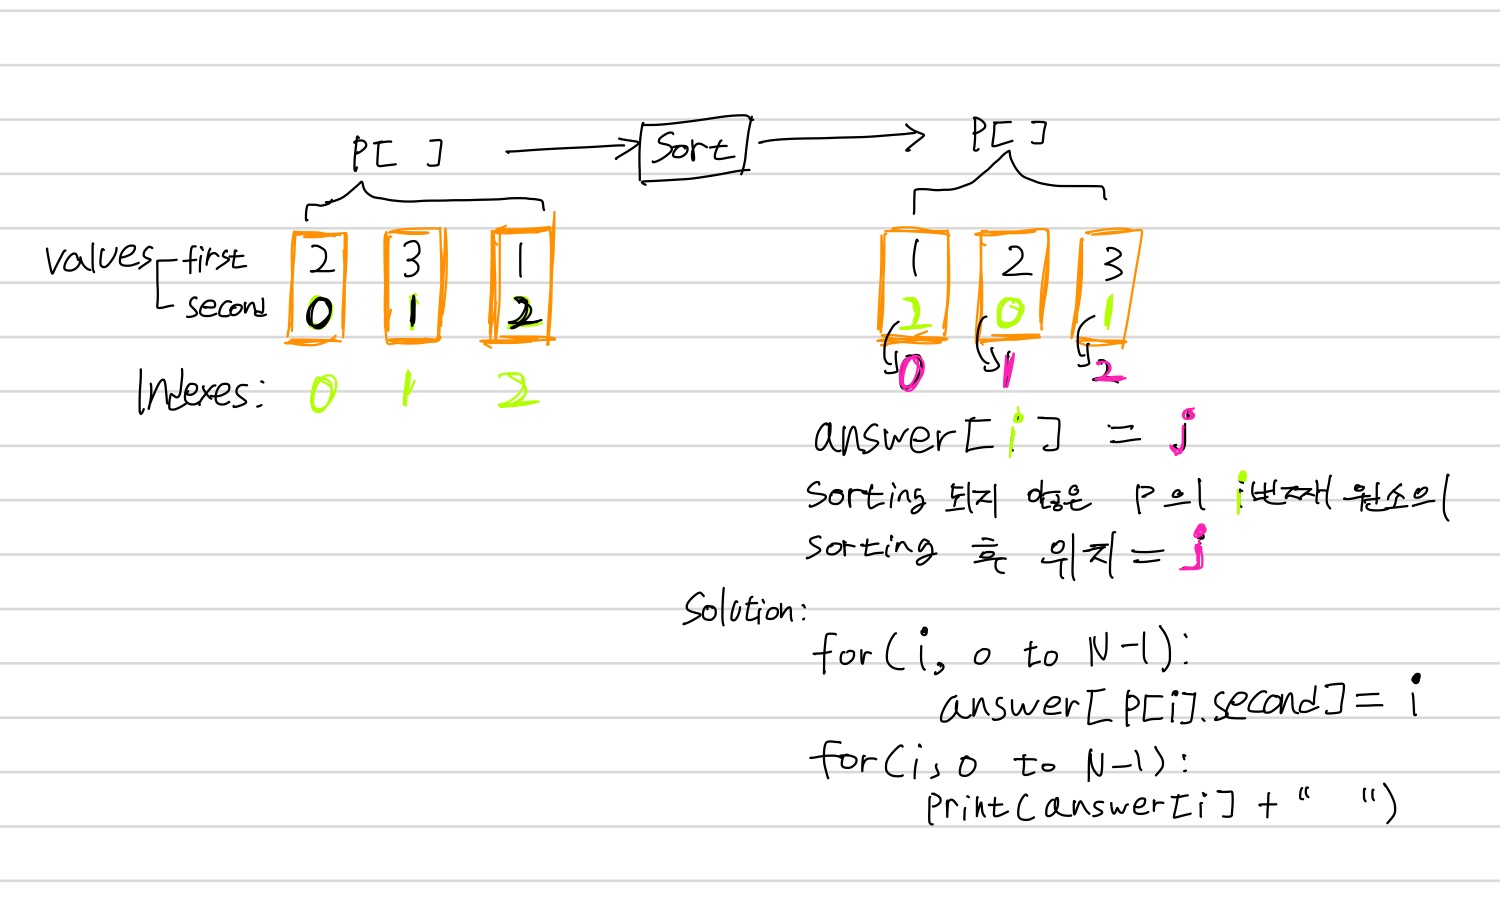 P[ ] → Sort → P[ ]
values first 2 3 1
second 0 1 2
Indexes: 0 1 2
1 2 3
2 0 1
0 1 2
answer[i] = j
Sorting 되지 않은 P의 i번째 원소의
Sorting 후 위치 = j
Solution:
for(i, 0 to N-1):
answer[P[i].second] = i
for(i, 0 to N-1):
print(answer[i] + " ")